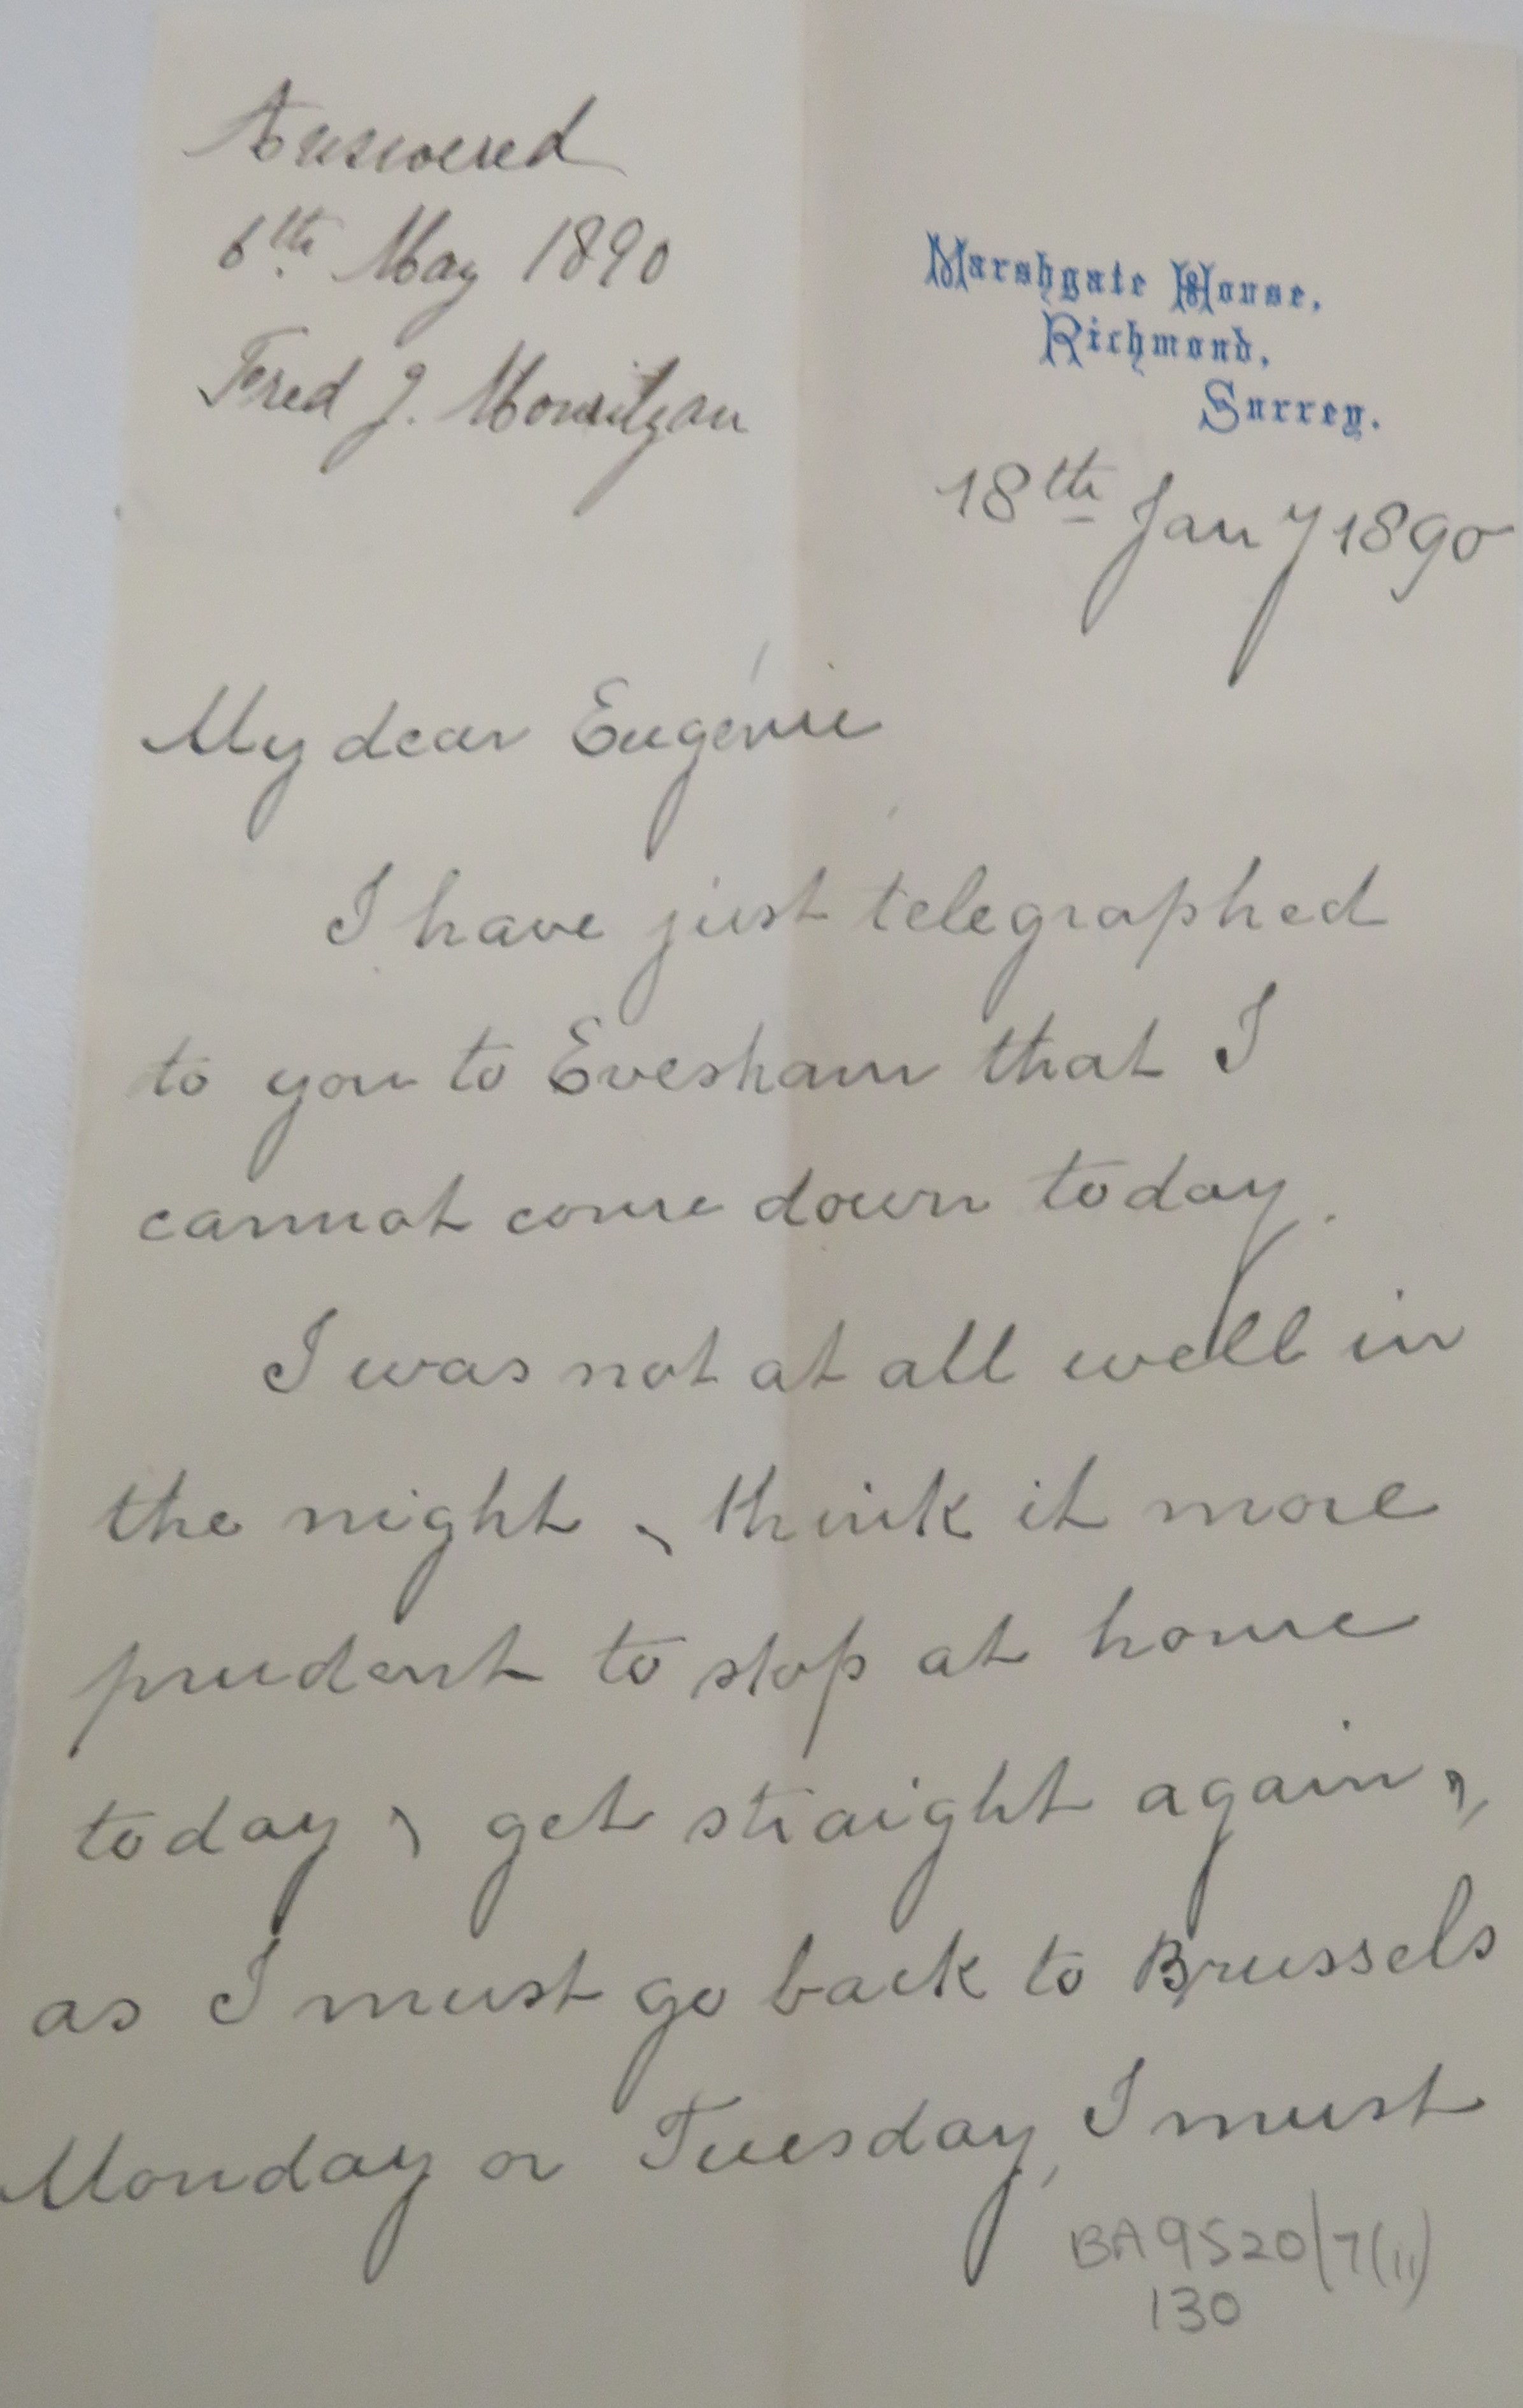 Answered
6th May 1890
Fred J.
Marshgate House,
Richmond,
Surrey.
18th Jany 1890
My dear Eugénie
I have just telegraphed
to you to Evesham that I
cannot come down today.
I was not at all well in
the night & think it more
prudent to stop at home
today & get straight again,
as I must go back to Brussels
Monday or Tuesday, I must
BA9520/7(11)
130